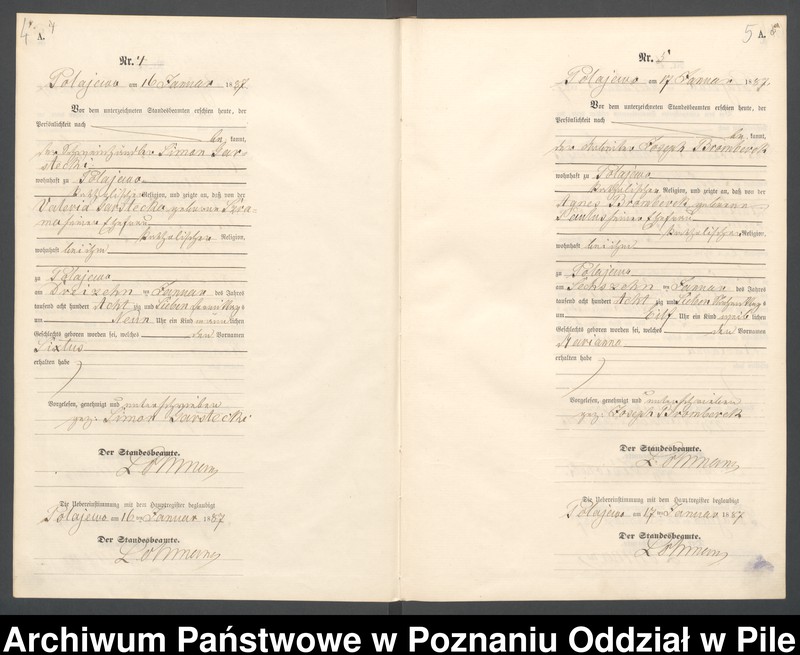 4. 4
A.
Nr. 4
Polajewo am 16 Januar 1887.
Vor dem unterzeichneten Standesbeamten erschien heute, der
Persönlichkeit nach
be kannt,
der Simon Gar-
stecki
wohnhaft zu Polajewo
katholischer Religion, und zeigte an, daß von der
Valeria Garstecka geborene
seiner Ehefrau
katholischer Religion,
wohnhaft bei ihm
zu Polajewo
am Dreizehn ten Januar des Jahres
tausend acht hundert Acht zig und Sieben Vormittags
um Neun Uhr ein Kind männlichen
Geschlechts geboren worden sei, welches den Vornamen
Sixtus
erhalten habe
Vorgelesen, genehmigt und unterschrieben
gez. Simon Garstecki
Der Standesbeamte.
Die Uebereinstimmung mit dem Hauptregister beglaubigt
Polajewo am 16 ten Januar 1887.
Der Standesbeamte.
5 A. 5
Nr. 5
Polajewo am 17 Januar 1887.
Vor dem unterzeichneten Standesbeamten erschien heute, der
Persönlichkeit nach
be kannt,
der Arbeiter Joseph Bromberek
wohnhaft zu Polajewo
katholischer Religion, und zeigte an, daß von der
Agnes Bromberek geborene
seiner Ehefrau
katholischer Religion,
wohnhaft bei ihm
zu Polajewo
am Sechszehn ten Januar des Jahres
tausend acht hundert Acht zig und Sieben Vormittags
um Elf Uhr ein Kind weiblichen
Geschlechts geboren worden sei, welches den Vornamen
Marianna
erhalten habe
Vorgelesen, genehmigt und unterschrieben
gez. Joseph Bromberek
Der Standesbeamte.
Die Uebereinstimmung mit dem Hauptregister beglaubigt
Polajewo am 17 ten Januar 1887
Der Standesbeamte.
Archiwum Państwowe w Poznaniu Oddział w Pile